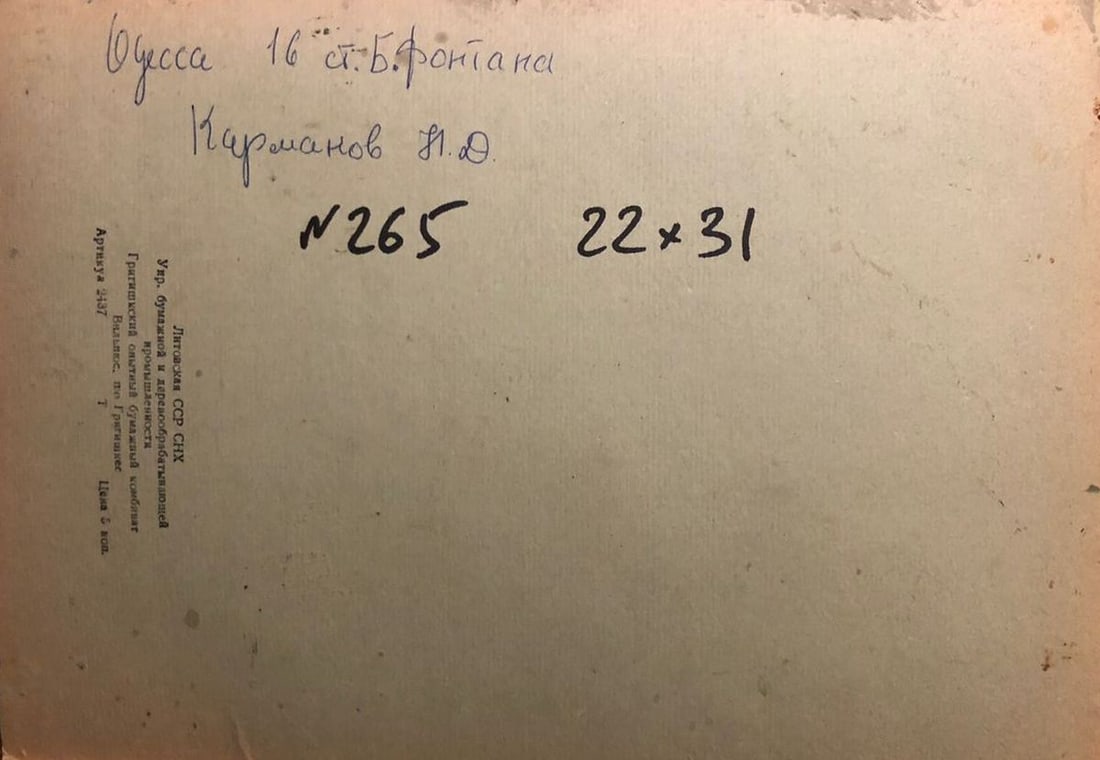 Одесса 16 ст. Б. фонтана
Карманов Н.Д.
№265 22×31
Литовская ССР СНХ
Упр. бумажной и деревообрабатывающей
промышленности
Григишкский опытный бумажный комбинат
Вильнюс, п/о Григишкес
Артикул 2437 Т Цена 5 коп.